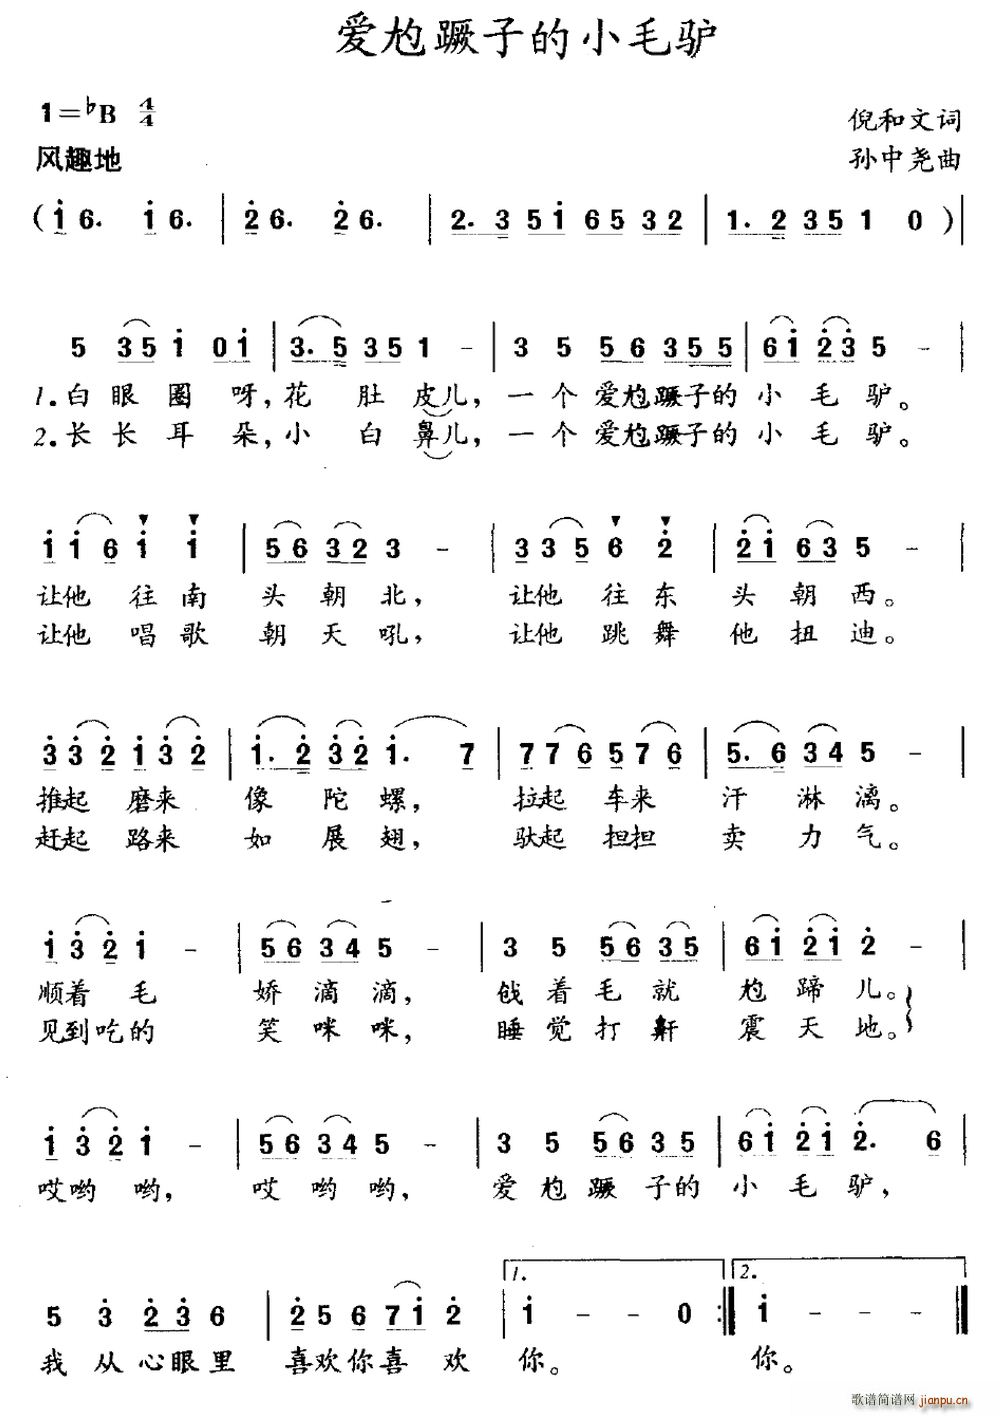 爱尥蹶子的小毛驴
1=♭B 4/4
倪和文词
风趣地
孙中尧曲
( i 6. i 6. | 2 6. 2 6. | 2. 3 5 i 6 5 3 2 | 1. 2 3 5 1 0 ) |
5 3 5 i 0 i | 3. 5 3 5 1 - | 3 5 5 6 3 5 5 | 6 i 2 3 5 - |
1. 白眼圈呀, 花肚皮儿, 一个爱尥蹶子的小毛驴。
2. 长长耳朵, 小白鼻儿, 一个爱尥蹶子的小毛驴。
i i 6 i i | 5 6 3 2 3 - | 3 3 5 6 2 | 2 i 6 3 5 - |
让他往南头朝北, 让他往东头朝西。
让他唱歌朝天吼, 让他跳舞他扭迪。
3 3 2 i 3 2 | i. 2 3 2 i. 7 | 7 7 6 5 7 6 | 5. 6 3 4 5 - |
推起磨来像陀螺, 拉起车来汗淋漓。
赶起路来如展翅, 驮起担担卖力气。
i 3 2 i - | 5 6 3 4 5 - | 3 5 5 6 3 5 | 6 i 2 i 2 - |
顺着毛娇滴滴, 戗着毛就尥蹄儿。
见到吃的笑咪咪, 睡觉打鼾震天地。
i 3 2 i - | 5 6 3 4 5 - | 3 5 5 6 3 5 | 6 i 2 i 2. 6 |
哎哟哟, 哎哟哟, 爱尥蹶子的小毛驴,
1. 2.
5 3 2 3 6 | 2 5 6 7 i 2 | i - - 0 :| i - - - |
我从心眼里喜欢你喜欢你。 你。
歌谱简谱网 jianpu.cn